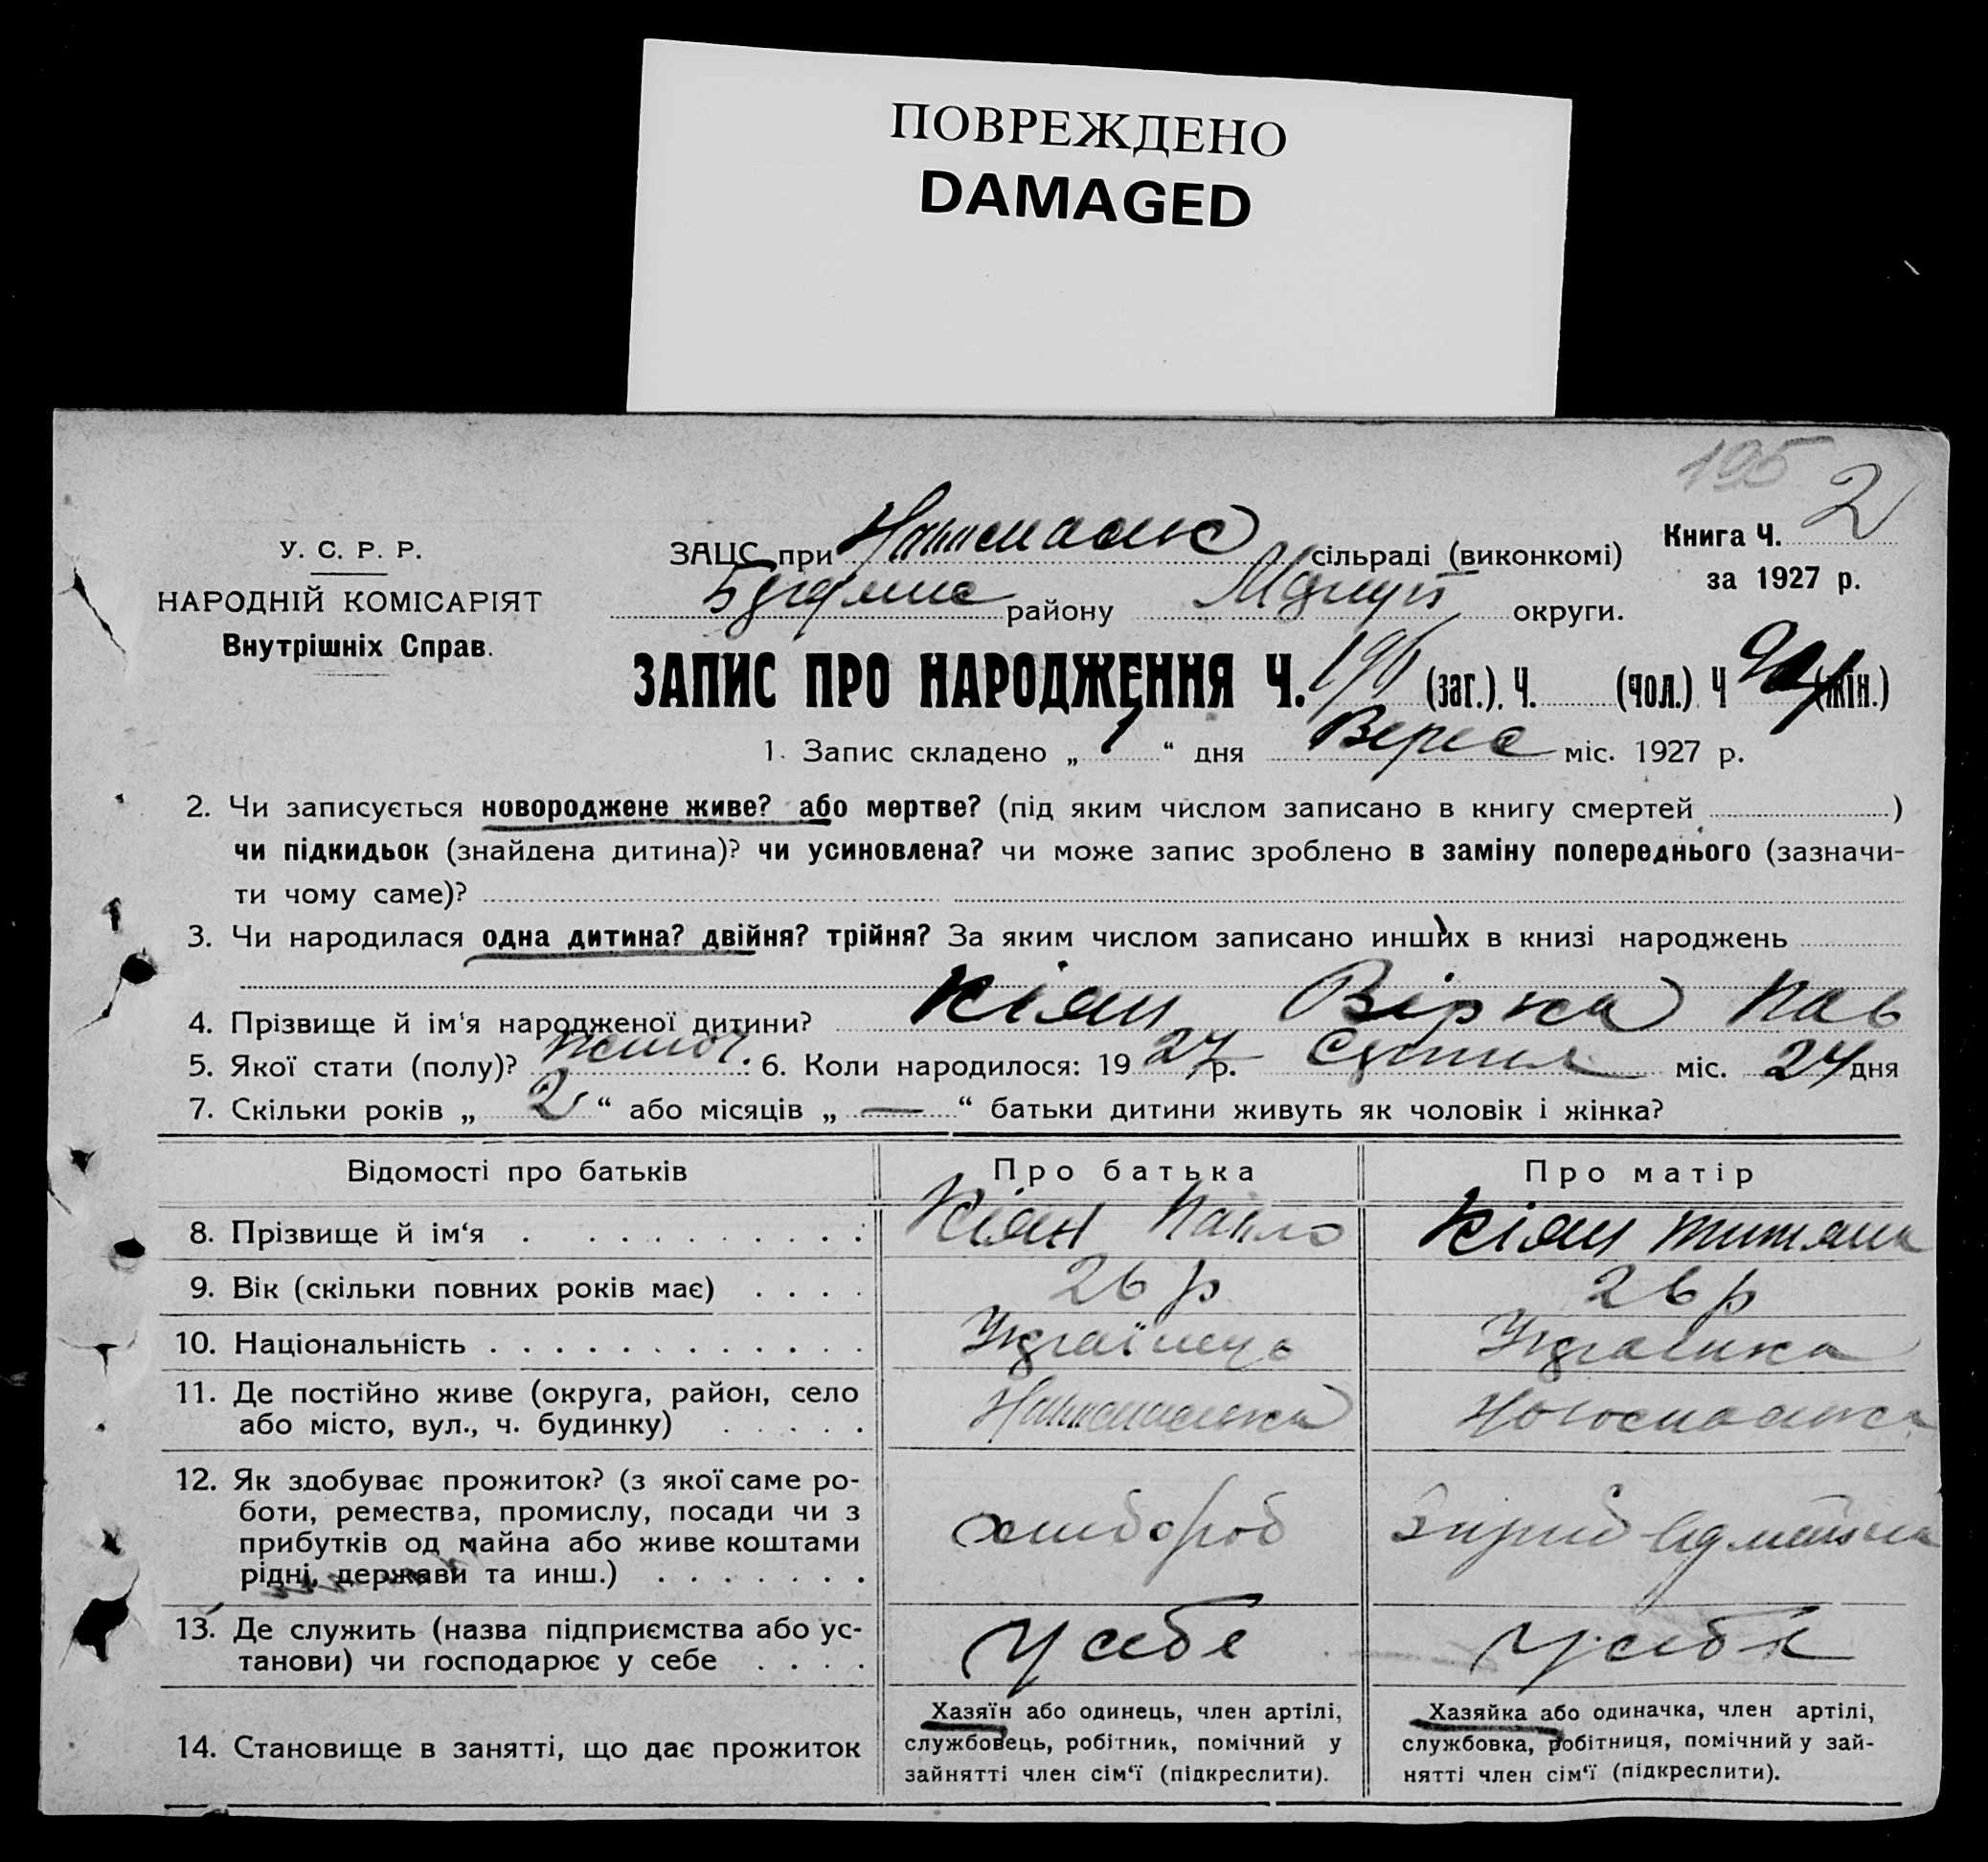 ПОВРЕЖДЕНО
DAMAGED
195
2
У. С. Р. Р.
НАРОДНІЙ КОМІСАРІЯТ
Внутрішніх Справ.
ЗАЦС при сільраді (виконкомі)
району округи.
Книга Ч.
за 1927 р.
ЗАПИС ПРО НАРОДЖЕННЯ Ч. 196 (заг.). Ч. (чол.) Ч (жін.)
1. Запис складено „ 1 “ дня Верес міс. 1927 р.
2. Чи записується новороджене живе? або мертве? (під яким числом записано в книгу смертей )
чи підкидьок (знайдена дитина)? чи усиновлена? чи може запис зроблено в заміну попереднього (зазначи-
ти чому саме)?
3. Чи народилася одна дитина? двійня? трійня? За яким числом записано инших в книзі народжень
4. Прізвище й ім'я народженої дитини? Кіян Вірка Пав
5. Якої стати (полу)? жіноч. 6. Коли народилося: 1927 р. Серпня міс. 24 дня
7. Скільки років „ 2 “ або місяців „ — “ батьки дитини живуть як чоловік і жінка?
Відомості про батьків Про батька Про матір
8. Прізвище й ім‘я Кіян Павло Кіян
9. Вік (скільки повних років має) 26 р 26 р
10. Національність Українець Українка
11. Де постійно живе (округа, район, село
або місто, вул., ч. будинку) Новоспаська Новоспаська
12. Як здобуває прожиток? (з якої саме ро-
боти, ремества, промислу, посади чи з
прибутків од майна або живе коштами
рідні, держави та инш.) хлібороб
13. Де служить (назва підприємства або ус-
танови) чи господарює у себе у себе у себе
14. Становище в занятті, що дає прожиток
Хазяїн або одинець, член артілі,
службовець, робітник, помічний у
зайнятті член сім‘ї (підкреслити).
Хазяйка або одиначка, член артілі,
службовка, робітниця, помічний у зай-
нятті член сім‘ї (підкреслити).